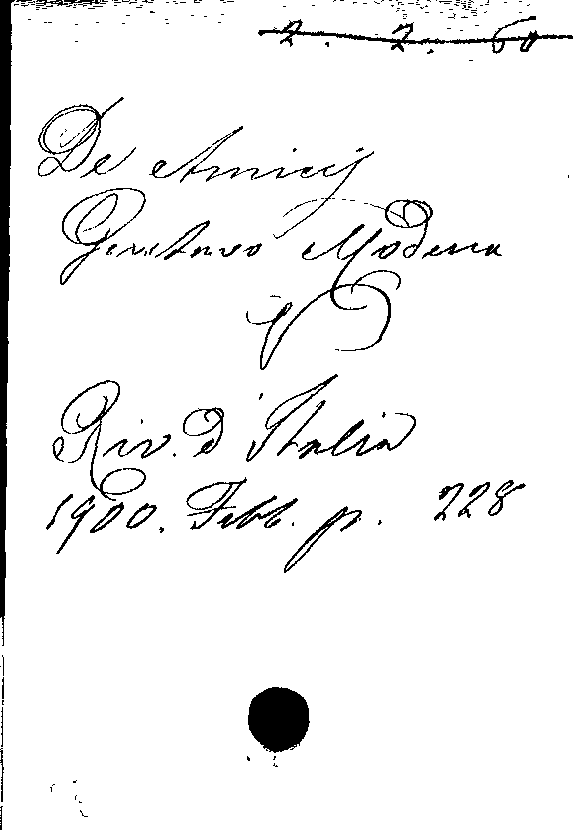 2. 2. 60
De Amicis
Gustavo Modena
Riv. d'Italia
1900. Febb. p. 228